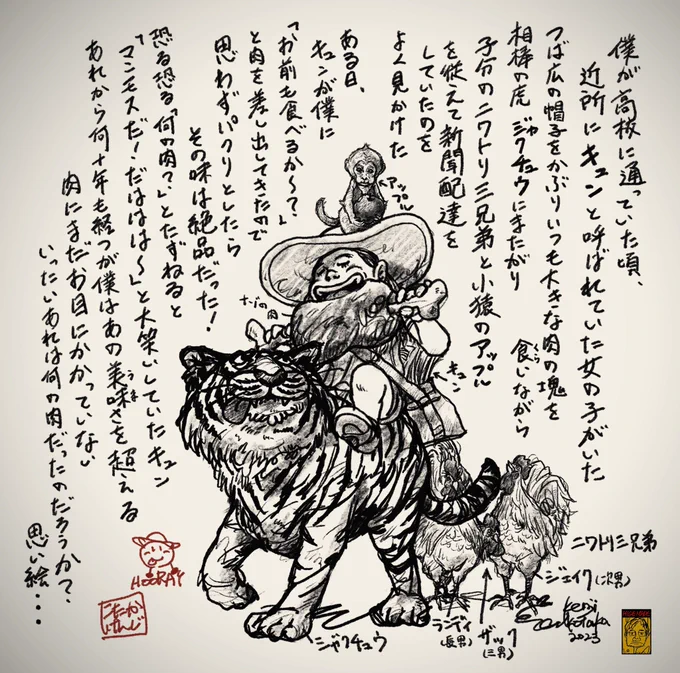 僕が高校に通っていた頃、
近所にキュンと呼ばれていた女の子がいた
つば広の帽子をかぶりいつも大きな肉の塊を
食いながら
くら
相棒の虎 ジャクチュウにまたがり
子分のニワトリ三兄弟と小猿のアップル
を従えて新聞配達を
していたのを
よく見かけた
ある日、
キュンが僕に
「お前も食べるか〜?」
と肉を差し出してきたので
思わずパクリとしたら
その味は絶品だった!
恐る恐る「何の肉?」とたずねると
「マンモスだ!だははは〜」と大笑いしていたキュン
あれから何十年も経つが僕はあの美味さを超える
うま
肉にまだお目にかかっていない
いったいあれは何の肉だったのだろうか?
思い絵...
アップル
ナゾの肉
キュン
ニワトリ三兄弟
ジェイク(次男)
ザック
(三男)
ランディ
(長男)
ジャクチュウ
HOORAY
こたか
けんじ
Kenji
Kotaka
2023